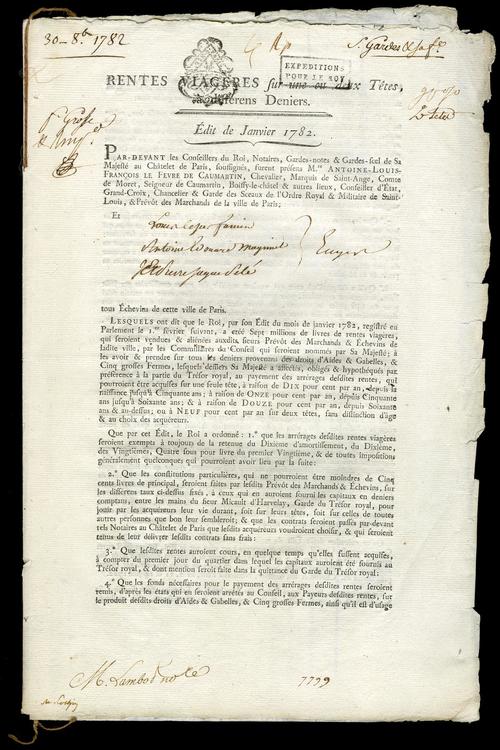 30 - 8.bre 1782
EXPEDITIONS
POUR LE ROY
RENTES VIAGÈRES sur une ou deux Têtes,
à différens Deniers.
Édit de Janvier 1782.
PAR-DEVANT les Conseillers du Roi, Notaires, Gardes-notes & Gardes-scel de Sa
Majesté au Châtelet de Paris, soussignés, furent présens M.re ANTOINE-LOUIS-
FRANÇOIS LE FEVRE DE CAUMARTIN, Chevalier, Marquis de Saint-Ange, Comte
de Moret, Seigneur de Caumartin, Boissy-le-châtel & autres lieux, Conseiller d'État,
Grand-Croix, Chancelier & Garde des Sceaux de l'Ordre Royal & Militaire de Saint-
Louis, & Prévôt des Marchands de la ville de Paris;
Et
Antoine Edouard Magimel
tous Échevins de cette ville de Paris.
LESQUELS ont dit que le Roi, par son Édit du mois de janvier 1782, registré en
Parlement le 1.er février suivant, a créé Sept millions de livres de rentes viagères,
qui seroient vendues & aliénées auxdits sieurs Prévôt des Marchands & Échevins de
ladite ville, par les Commissaires du Conseil qui seroient nommés par Sa Majesté; à
les avoir & prendre sur tous les deniers provenans des droits d'Aides & Gabelles, &
Cinq grosses Fermes, lesquels deniers Sa Majesté a affectés, obligés & hypothéqués par
préférence à la partie du Trésor royal, au payement des arrérages desdites rentes, qui
pourroient être acquises sur une seule tête, à raison de DIX pour cent par an, depuis la
naissance jusqu'à Cinquante ans; à raison de ONZE pour cent par an, depuis Cinquante
ans jusqu'à Soixante ans; & à raison de DOUZE pour cent par an, depuis Soixante
ans & au-dessus, ou à NEUF pour cent par an sur deux têtes, sans distinction d'âge
& au choix des acquéreurs.
Que par cet Édit, le Roi a ordonné: 1.° que les arrérages desdites rentes viagères
seroient exempts à toujours de la retenue du Dixième d'amortissement, du Dixième,
des Vingtièmes, Quatre sous pour livre du premier Vingtième, & de toutes impositions
généralement quelconques qui pourroient avoir lieu par la suite:
2.° Que les constitutions particulières, qui ne pourroient être moindres de Cinq
cents livres de principal, seroient faites par lesdits Prévôt des Marchands & Échevins, sur
les différens taux ci-dessus fixés, à ceux qui en auroient fourni les capitaux en deniers
comptans, entre les mains du sieur Micault d'Harvelay, Garde du Trésor royal, pour
jouir par les acquéreurs leur vie durant, soit sur leurs têtes, soit sur celles de toutes
autres personnes que bon leur sembleroit; & que les contrats seroient passés par-devant
tels Notaires au Châtelet de Paris que lesdits acquéreurs voudroient choisir, & qui seroient
tenus de leur délivrer lesdits contrats sans frais:
3.° Que lesdites rentes auroient cours, en quelque temps qu'elles fussent acquises,
à compter du premier jour du quartier dans lequel les capitaux auroient été fournis au
Trésor royal, & dont mention seroit faite dans la quittance du Garde du Trésor royal:
4.° Que les fonds nécessaires pour le payement des arrérages desdites rentes, seroient
remis, d'après les états qui en seroient arrêtés au Conseil, aux Payeurs desdites rentes, sur
le produit desdits droits d'Aides & Gabelles, & Cinq grosses Fermes, ainsi qu'il est d'usage
7799